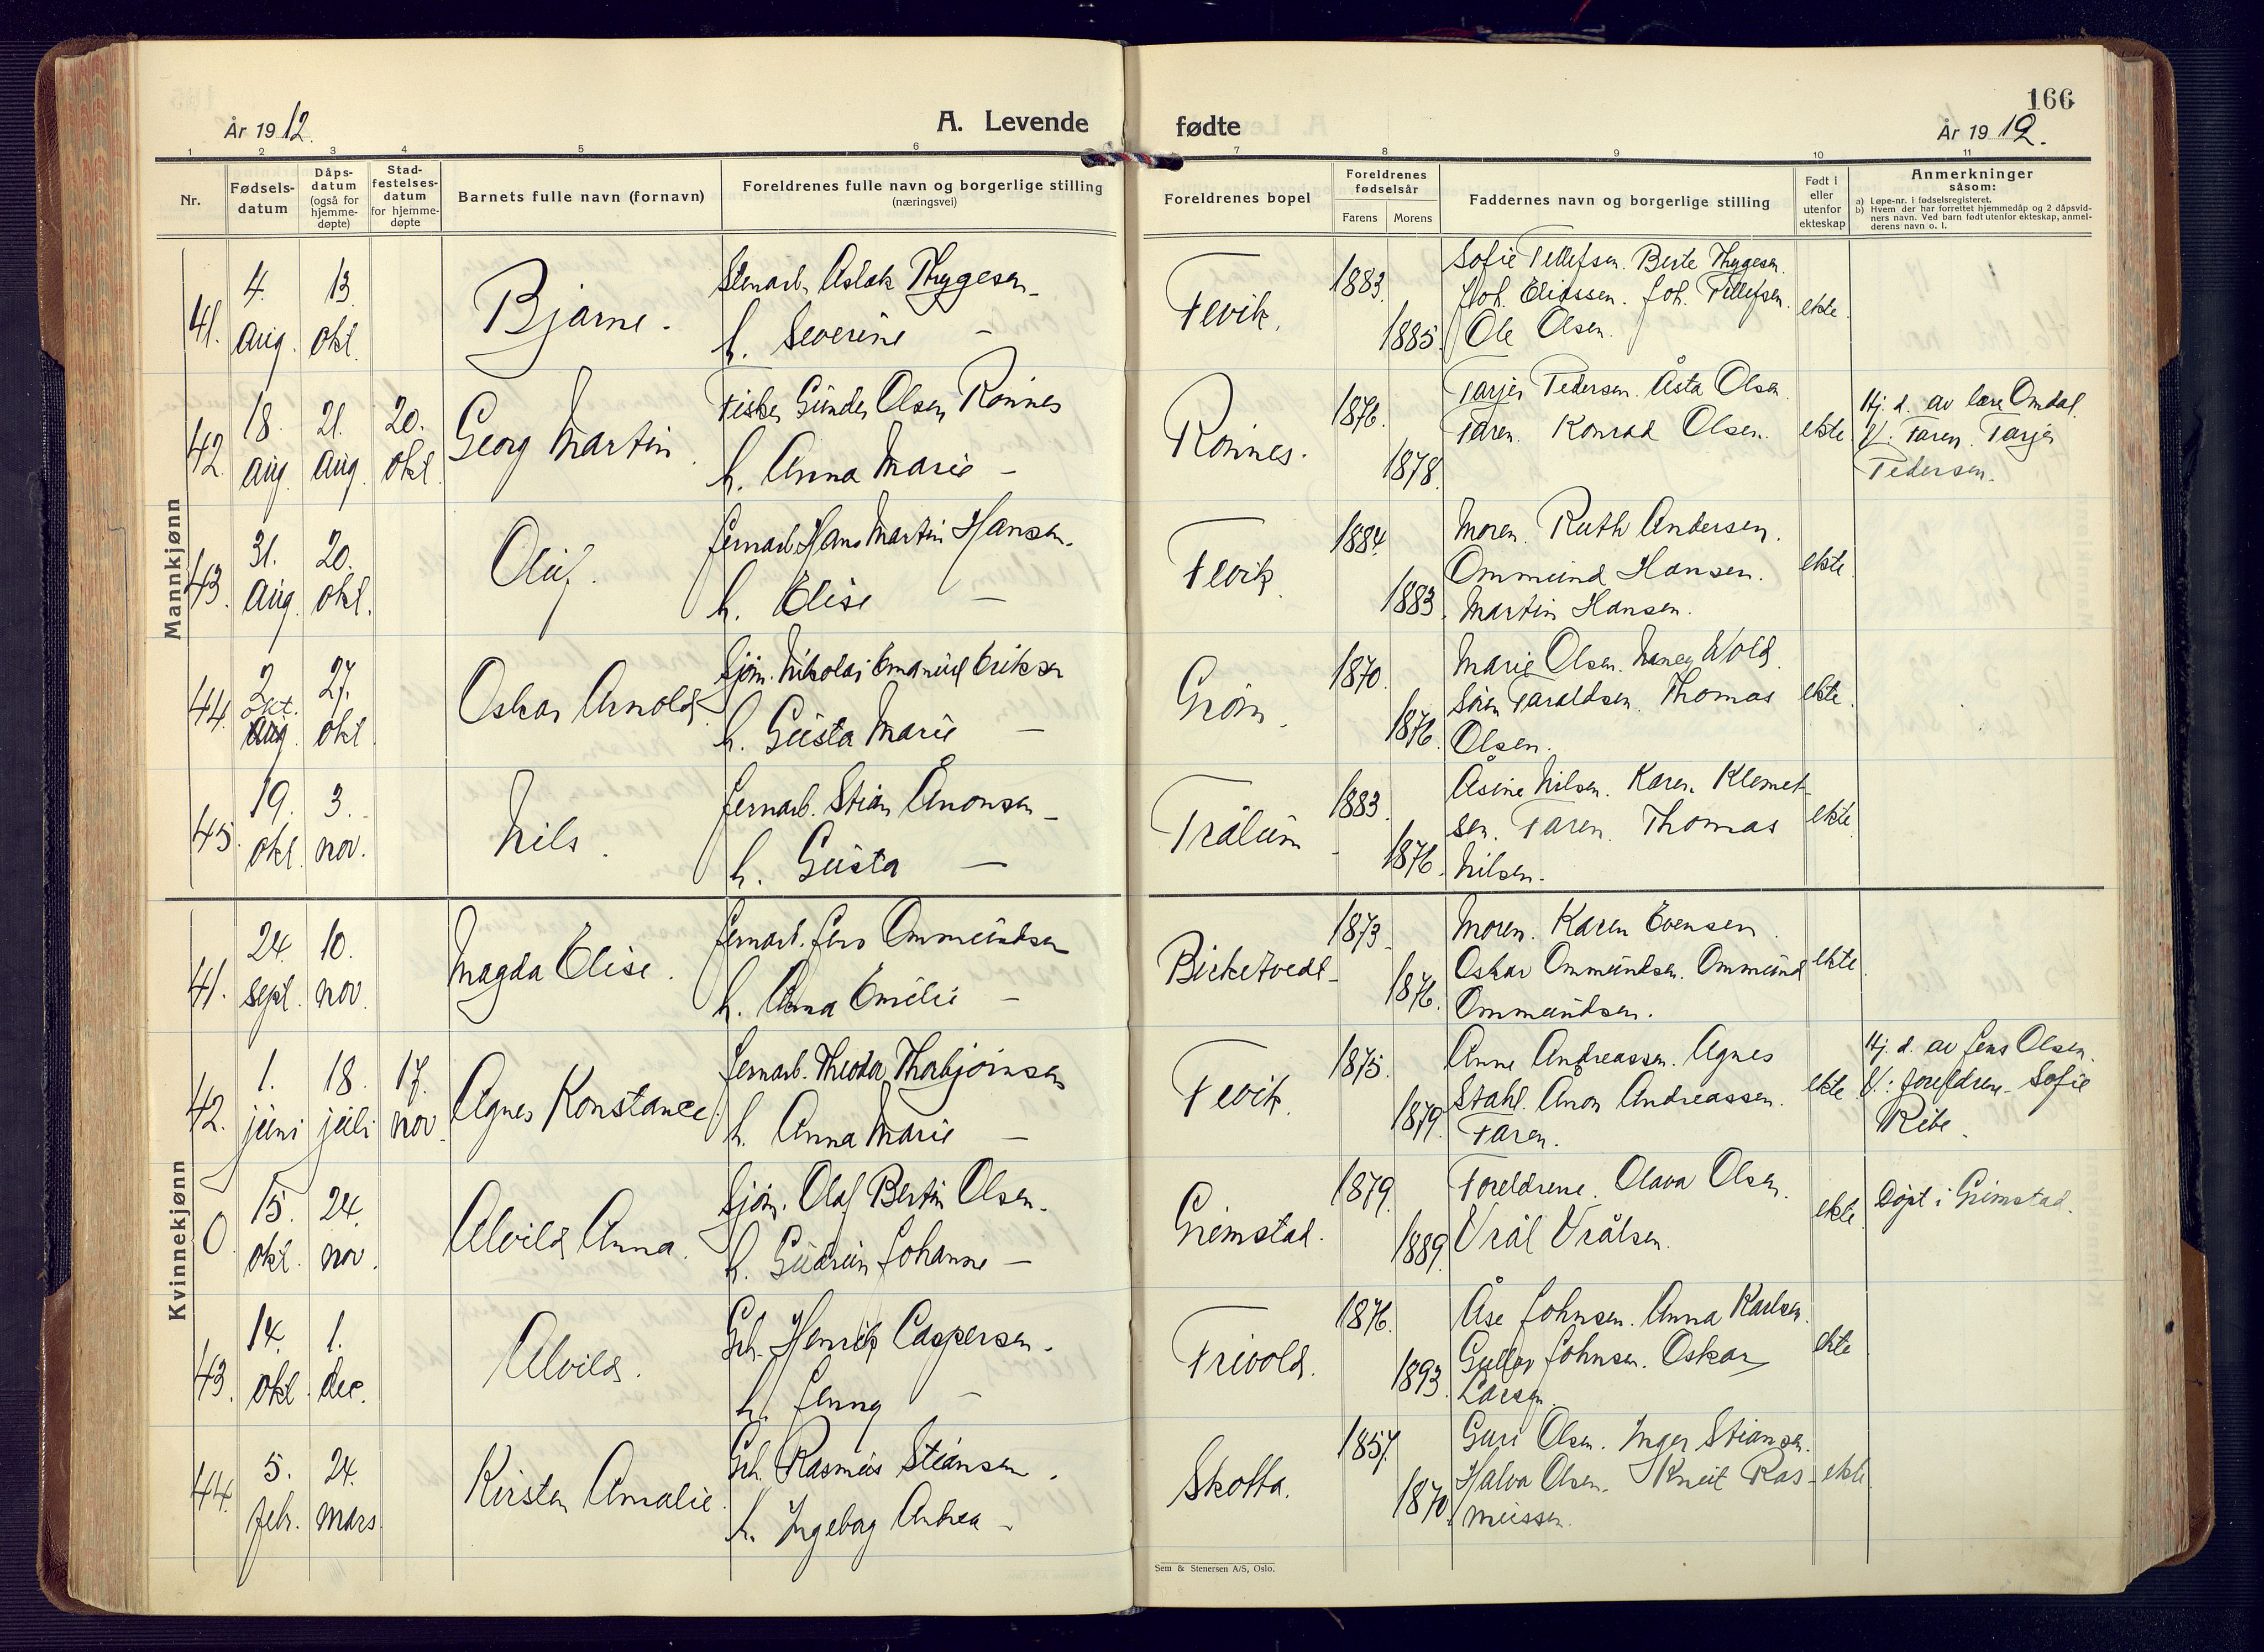 166
År 1912.
A. Levende fødte
År 1912.
1 2 3 4 5 6 7 8 9 10 11
Nr.
Fødsels-
datum
Dåps-
datum
(også for
hjemme-
døpte)
Stad-
festelses-
datum
for hjemme-
døpte
Barnets fulle navn (fornavn)
Foreldrenes fulle navn og borgerlige stilling
(næringsvei)
Foreldrenes bopel
Foreldrenes
fødselsår
Farens Morens
Faddernes navn og borgerlige stilling
Født i
eller
utenfor
ekteskap
Anmerkninger
såsom:
a) Løpe-nr. i fødselsregisteret.
b) Hvem der har forrettet hjemmedåp og 2 dåpsvid-
ners navn. Ved barn født utenfor ekteskap, anmel-
derens navn o. l.
Mannkjønn
41.
4.
aug.
13.
okt.
Bjarne.
Stenarb. Aslak Thygesen
h. Severine —
Fevik.
1883.
1885.
Sofie Tellefsen. Berte Thygesen.
Joh. Eliassen. Joh. Tellefsen.
Ole Olsen.
ekte.
42.
18.
aug.
21.
aug.
20.
okt.
Georg Martin.
Fisker Gunder Olsen Rønnes
h. Anna Marie —
Rønnes.
1876.
1878.
Tarjer Pedersen. Åsta Olsen.
Faren. Konrad Olsen.
ekte.
Hj. d. av lære Omdal.
V: Faren. Tarjer
Pedersen.
43.
31.
aug.
20.
okt.
Oluf.
Jernarb. Hans Martin Hansen.
h. Elise —
Fevik.
1884.
1883.
Moren. Ruth Andersen.
Ommund Hansen.
Martin Hansen.
ekte.
44.
2
okt.
aug.
27.
okt.
Oskar Arnold.
Sjøm. Nikolai Emanuel Eriksen
h. Gusta Marie —
Grøm.
1870.
1876.
Marie Olsen. Nancy Wold.
Søren Taraldsen. Thomas
Olsen.
ekte.
45.
19.
okt.
3.
nov.
Nils.
Jernarb. Stian Anonsen —
h. Gusta —
Trålum
1883.
1876.
Åsine Nilsen. Karen Klemet-
sen. Faren. Thomas
Nilsen.
ekte.
Kvinnekjønn
41.
24.
sept.
10.
nov.
Magda Elise.
Jernarb. Jens Ommundsen
h. Anna Emilie —
Birketvedt
1873.
1876.
Moren. Karen Evensen.
Oskar Ommundsen. Ommund
Ommundsen.
ekte.
42.
1.
juni
18.
juli
17.
nov.
Agnes Konstance.
Jernarb. Theodor Thorbjørnsen
h. Anna Marie —
Fevik.
1875.
1879.
Anne Andreassen. Agnes
Stahl. Anon Andreassen.
Faren.
ekte.
Hj. d. av Jens Olsen.
V: foreldrene. Sofie
Ribe.
0
15.
okt.
24.
nov.
Alvild Anna.
Sjøm. Olaf Bertin Olsen.
h. Gudrun Johanne —
Grimstad.
1879.
1889.
Foreldrene. Olava Olsen.
Vrål Vrålsen.
ekte.
Døpt i Grimstad.
43.
14.
okt.
1.
dec.
Alvild.
Gbr. Henrik Caspersen.
h. Jenny —
Frivold.
1876.
1893.
Åse Johnsen. Anna Karlsen.
Gullov Johnsen. Oskar
Larsen.
ekte
44.
5.
febr.
24.
mars.
Kirsten Amalie.
Gbr. Rasmus Stiansen.
h. Ingeborg Andrea —
Skotta.
1857.
1870.
Guri Olsen. Inger Stiansen.
Halvor Olsen. Knut Ras-
mussen.
ekte.
Sem & Stenersen A/S, Oslo.